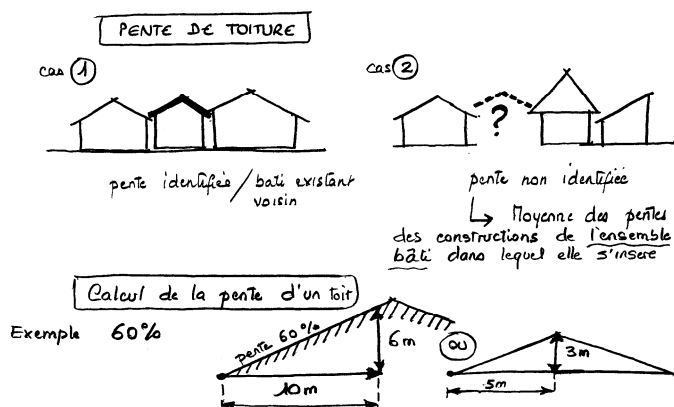 PENTE DE TOITURE
cas 1
cas 2
?
pente identifiée / bâti existant
voisin
pente non identifiée
Moyenne des pentes
des constructions de l'ensemble
bâti dans lequel elle s'insere
Calcul de la pente d'un toit
Exemple 60%
pente 60%
6m
10m
ou
3m
5m